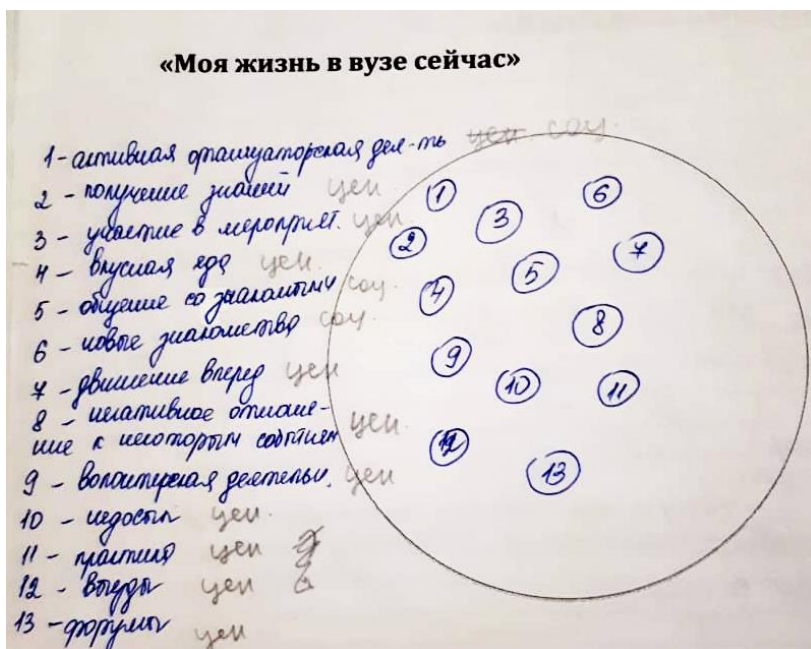 «Моя жизнь в вузе сейчас»
1 - активная организаторская дея-ть цен соц.
2 - получение знаний цен
3 - участие в меропрят. цен
4 - вкусная еда цен.
5 - общение со знакомыми соц.
6 - новые знакомства соц.
7 - движение вперед цен
8 - негативное отноше-
ние к некоторым событиям цен.
9 - волонтерская деятельн. цен
10 - недосып цен.
11 - практика цен
12 - выезды цен
13 - форумы цен
1 6
3
2 7
5
4
8
9
10 11
12
13